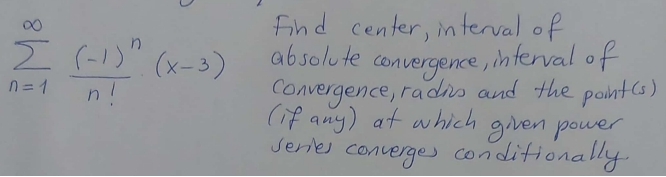 ∞
Σ (-1)ⁿ/n! · (x-3)
n=1
Find center, interval of
absolute convergence, interval of
convergence, radius and the point(s)
(if any) at which given power
series converges conditionally